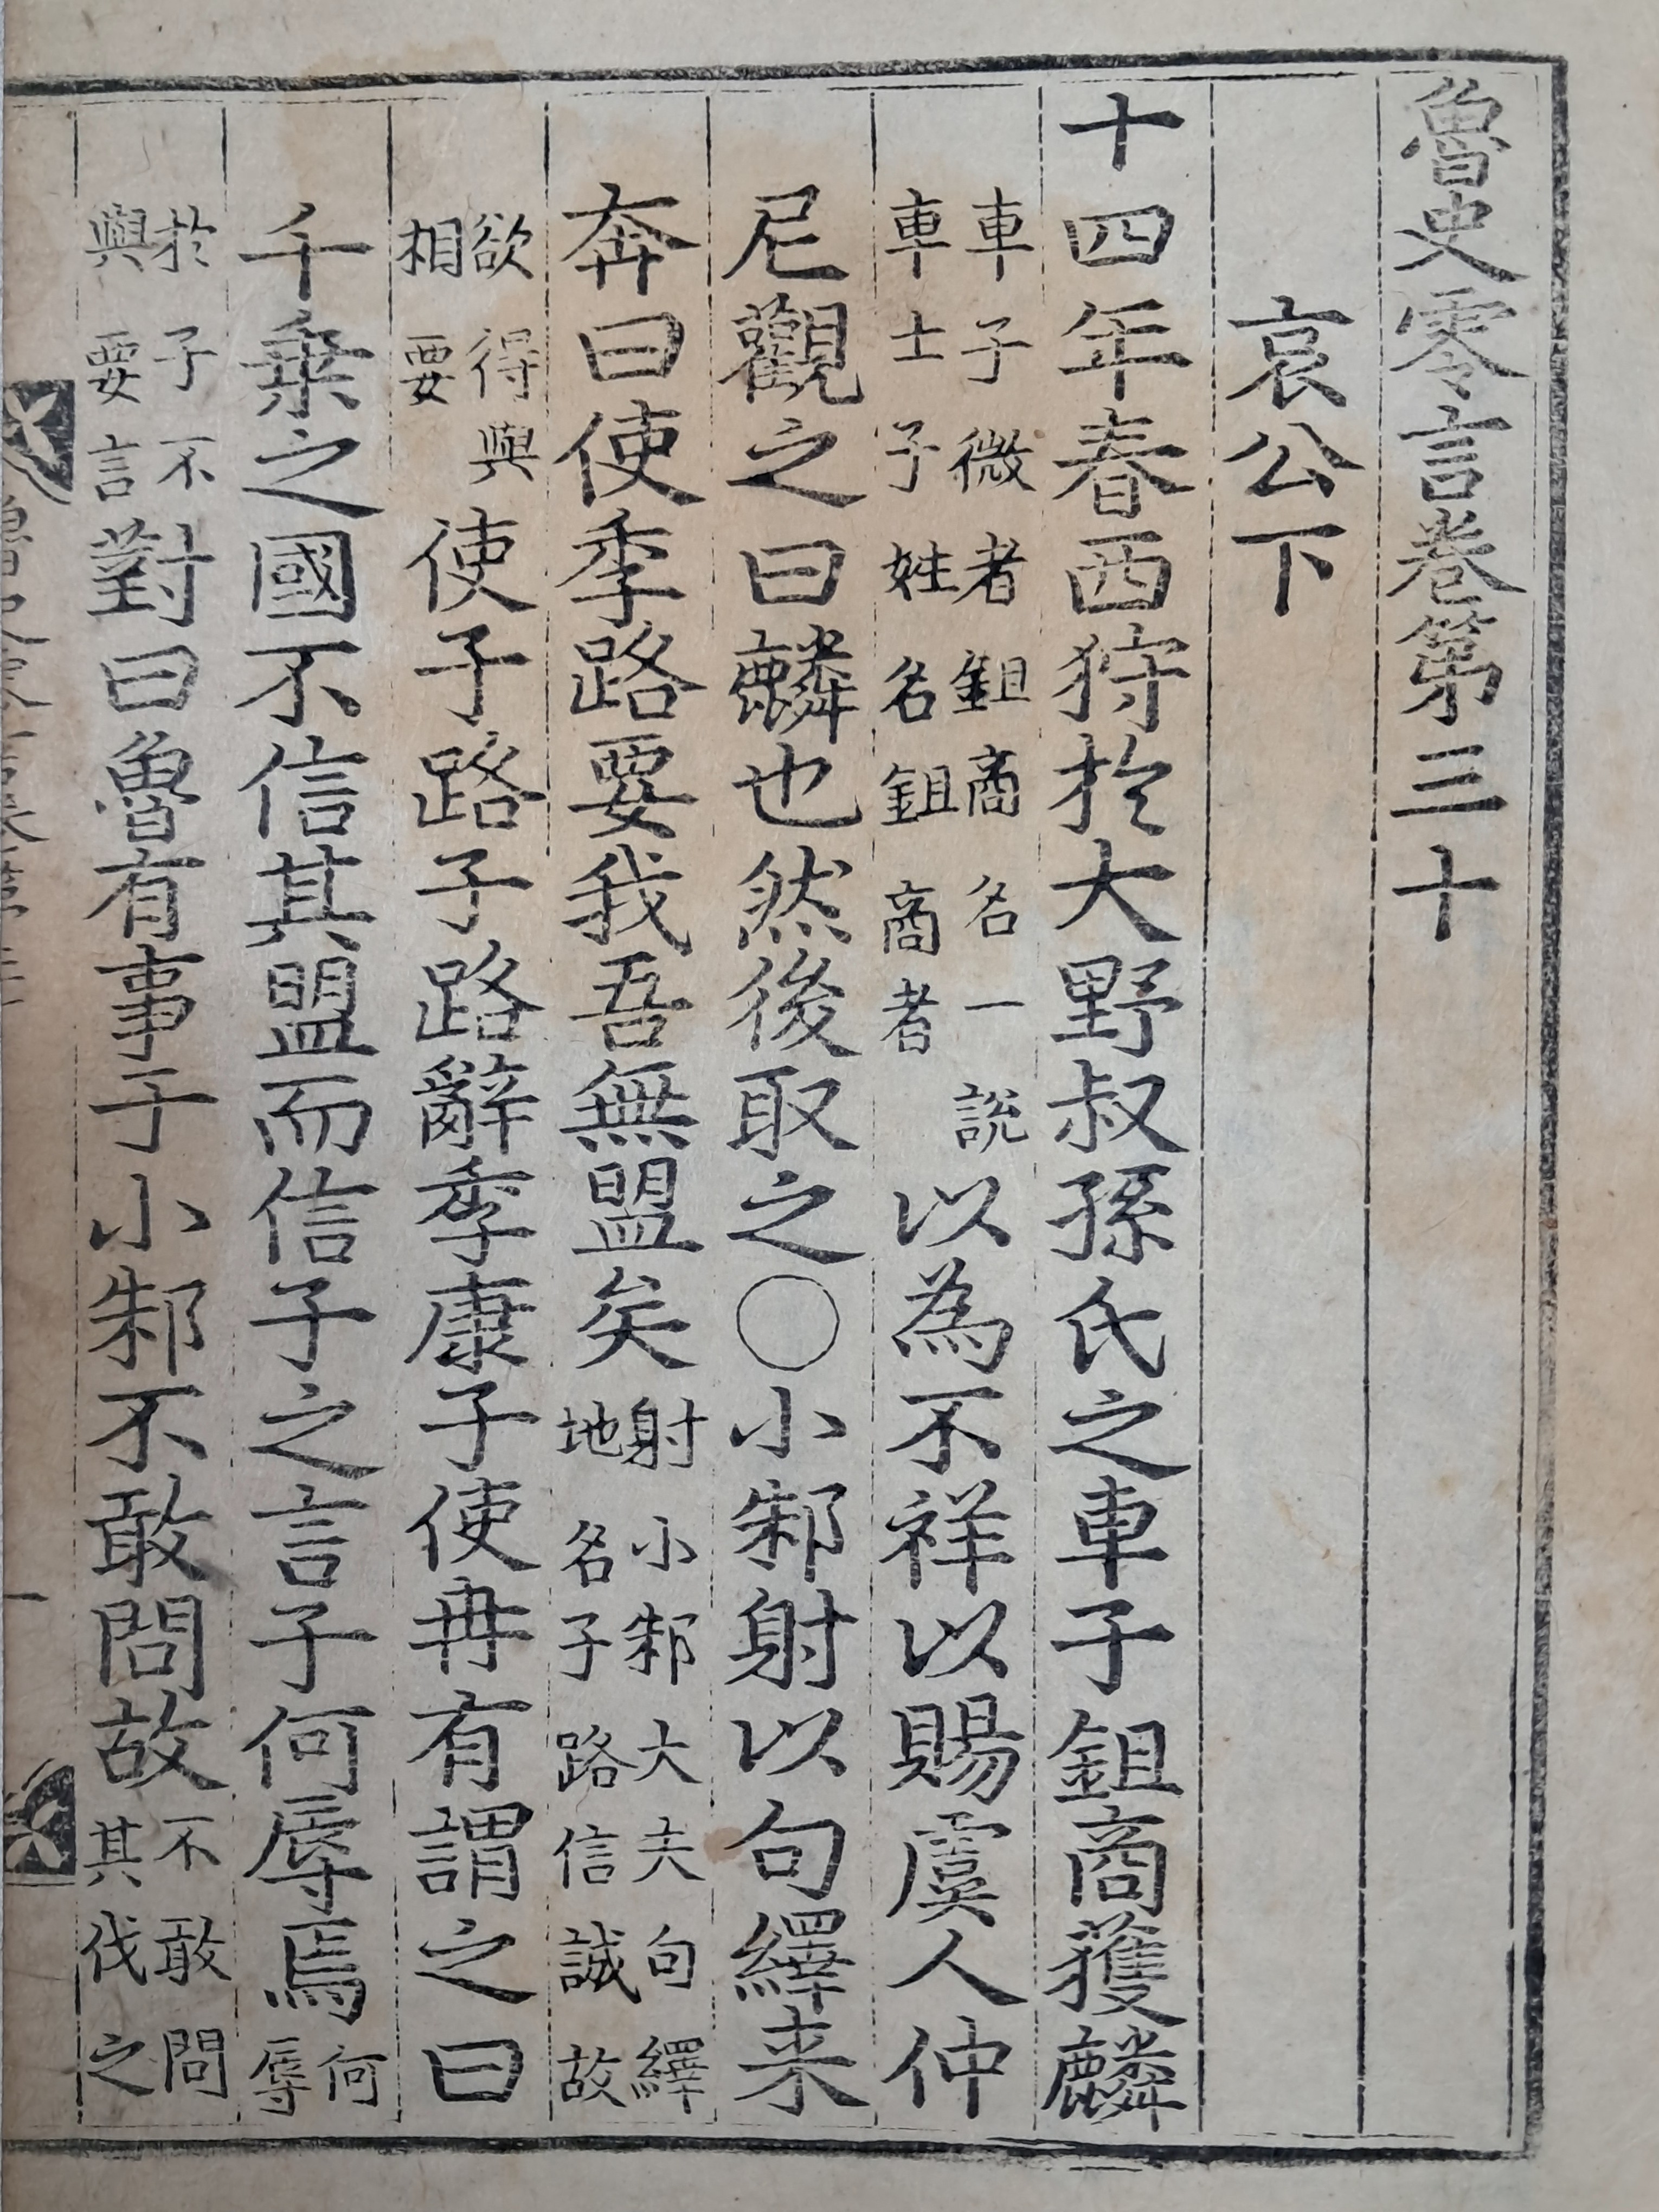 魯史零言卷第三十
哀公下
十四年春西狩於大野叔孫氏之車子鉏商獲麟
車子微者鉏商名一說
車士子姓名鉏商者
以為不祥以賜虞人仲
尼觀之曰麟也然後取之〇小邾射以句繹来
奔曰使季路要我吾無盟矣
射小邾大夫句繹
地名子路信誠故
欲得與
相要
使子路子路辭季康子使冉有謂之曰
千乗之國不信其盟而信子之言子何辱焉
何
辱
於子不
與要言
對曰魯有事于小邾不敢問故
不敢問
其伐之